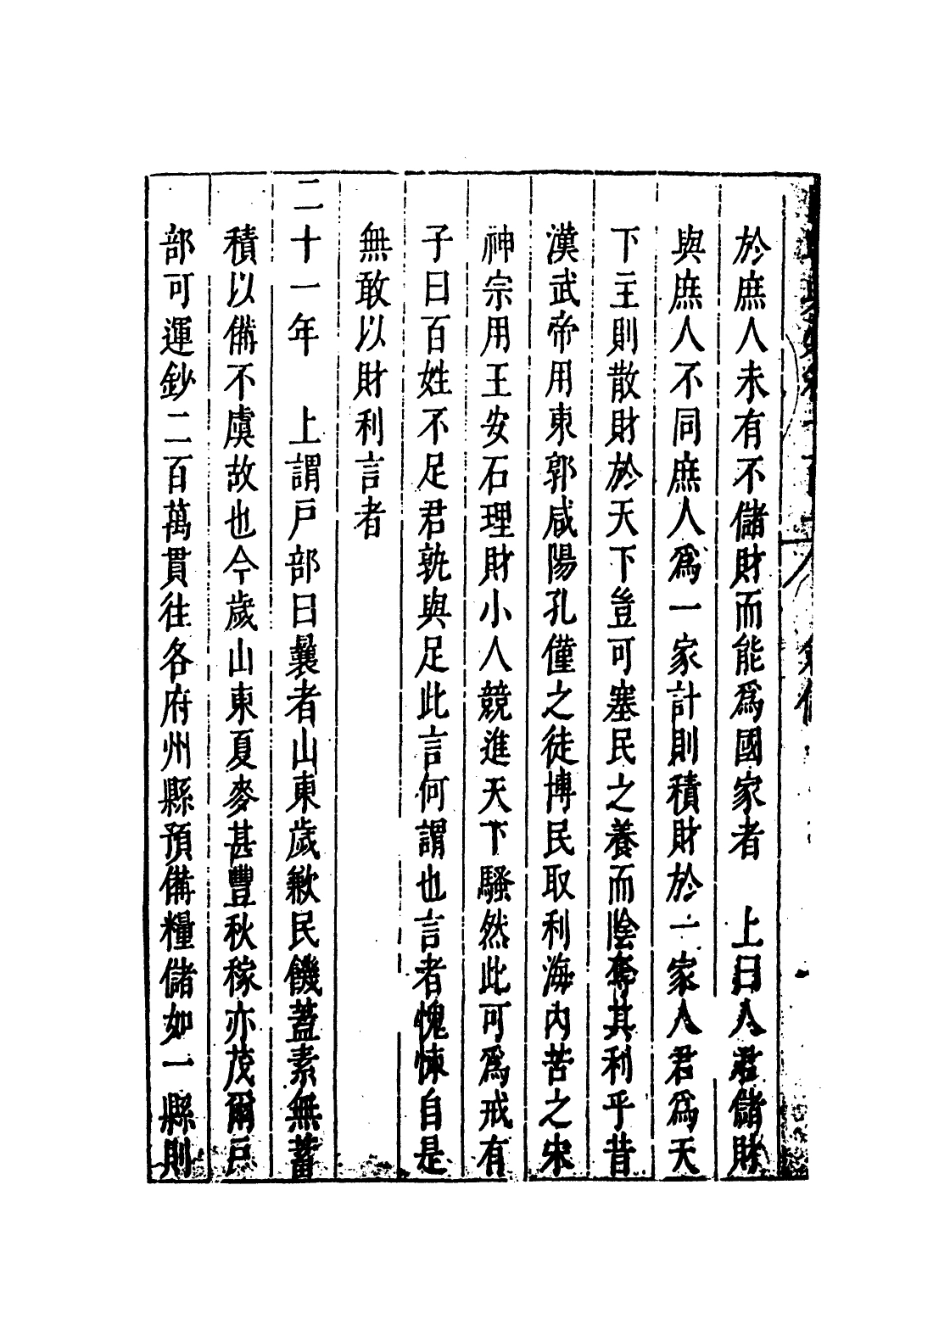 於庶人未有不儲財而能爲國家者　上曰人君儲財
與庶人不同庶人爲一家計則積財於一家人君爲天
下主則散財於天下豈可塞民之養而陰奪其利乎昔
漢武帝用東郭咸陽孔僅之徒博民取利海内苦之宋
神宗用王安石理財小人競進天下騷然此可爲戒有
子曰百姓不足君孰與足此言何謂也言者愧悚自是
無敢以財利言者
二十一年　上謂戸部曰曩者山東歲歉民饑蓋素無蓄
積以備不虞故也今歲山東夏麥甚豐秋稼亦茂爾戸
部可運鈔二百萬貫往各府州縣預備糧儲如一縣則